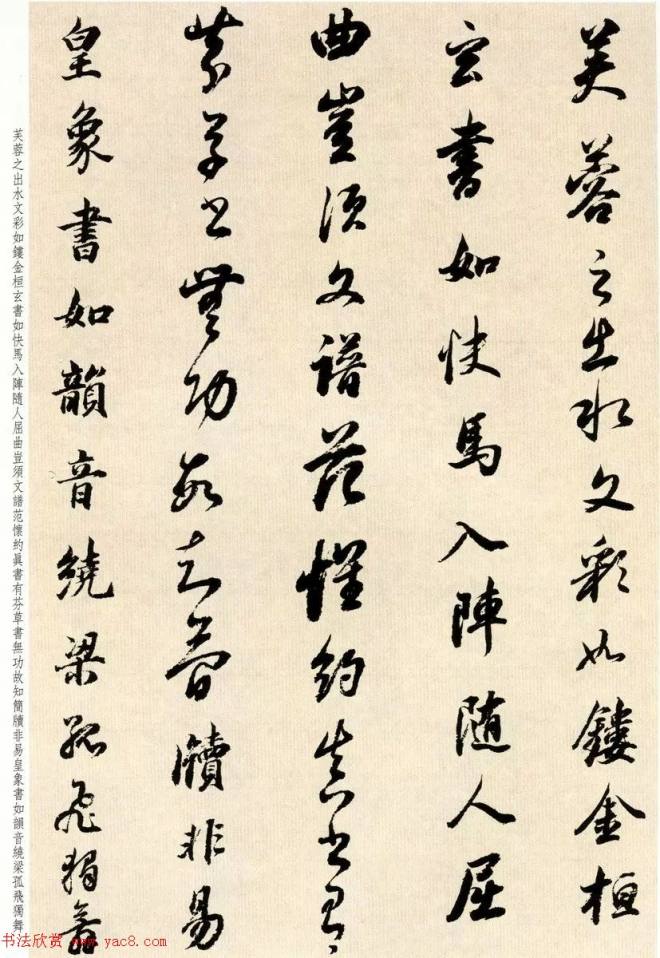 芙蓉之出水文彩如鏤金桓
玄書如快馬入陣隨人屈
曲豈須文譜范懷約真書有
芬草書無功故知簡牘非易
皇象書如韻音繞梁孤飛獨舞
芙蓉之出水文彩如鏤金桓玄書如快馬入陣隨人屈曲豈須文譜范懷約眞書有芬草書無功故知簡牘非易皇象書如韻音繞梁孤飛獨舞
书法欣赏 www.yac8.com